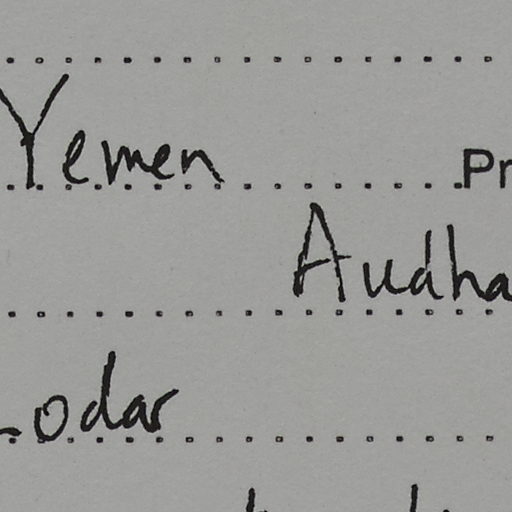 Yemen Pr
Audha
Lodar